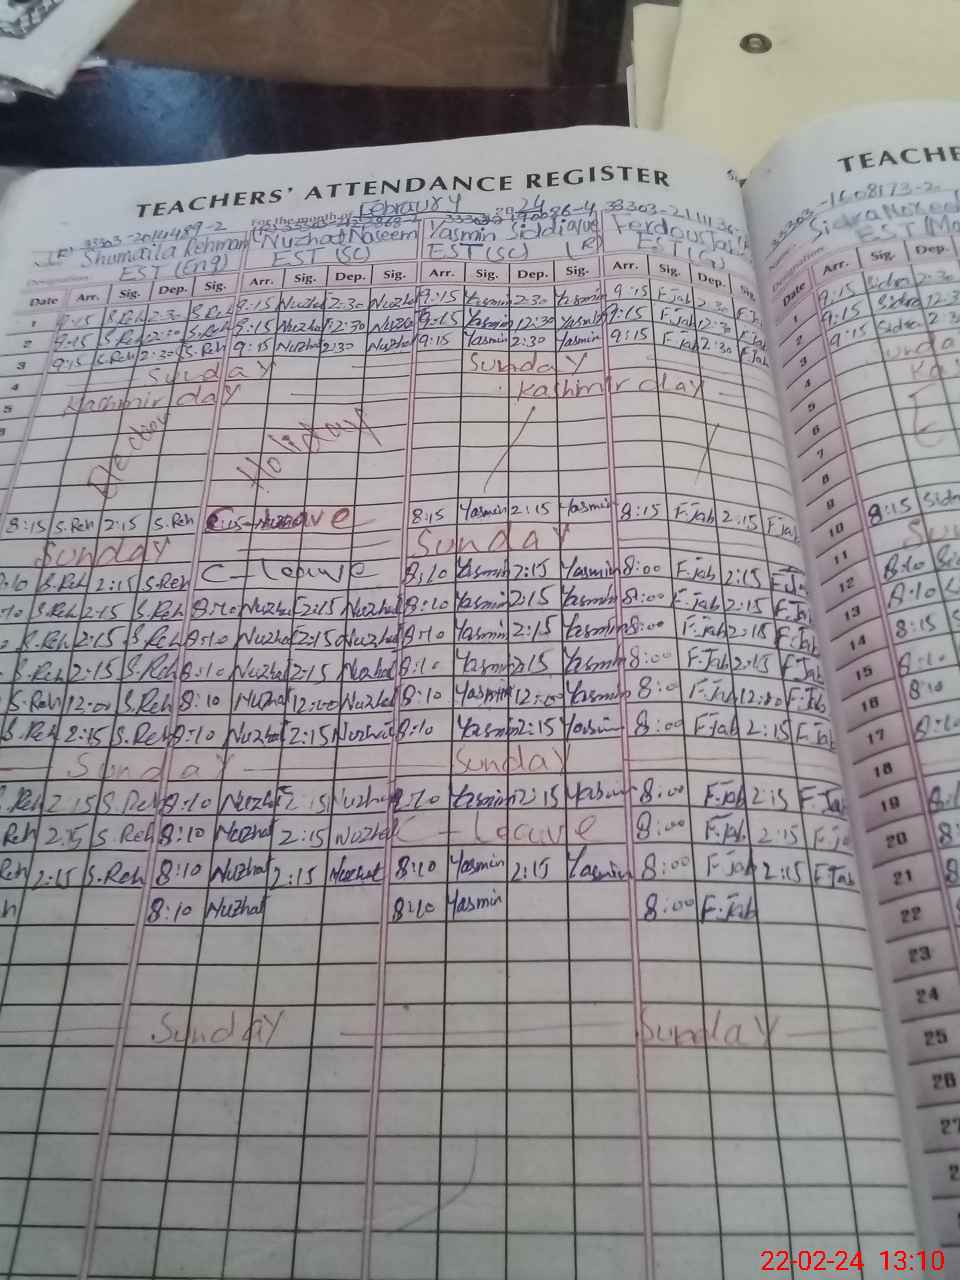 TEACHERS' ATTENDANCE REGISTER
TEACHE
For the month of February 2024
Shumaila Rehman Nuzhat Naseem Yasmin Siddique
EST (Eng) EST (SC) EST (SC)
Date Arr. Sig. Dep. Sig. Arr. Sig. Dep. Sig. Arr. Sig. Dep. Sig. Arr. Sig. Dep. Sig. Date Arr. Sig. Dep.
1 9:15 S.Reh 2:30 S.Reh 9:15 Nuzhat 2:30 Nuzhat 9:15 Yasmin 2:30 Yasmin 9:15 F.Jab 2:30 1 9:15 Sidra 2:30
2 9:15 S.Reh S.Reh 9:15 Nuzhat 12:30 Nuzhat 9:15 Yasmin 12:30 Yasmin 9:15 F.Jab 12:30 2 9:15 Sidra 12:3
3 9:15 S.Reh 2:30 S.Reh 9:15 Nuzhat 2:30 Nuzhat 9:15 Yasmin 2:30 Yasmin 9:15 F.Jab 2:30 F.Jab 3 9:15 Sidra 2:30
4 Sunday Sunday 4
5 Kashmir day Kashmir day 5
Holiday
6
7
8
9
8:15 S.Reh 2:15 S.Reh C-leave 8:15 Yasmin 2:15 Yasmin 8:15 F.Jab 2:15 F.Jab 10 8:15
Sunday Sunday 11
S.Reh 2:15 S.Reh C-leave 8:10 Yasmin 2:15 Yasmin 8:00 F.Jab 2:15 F.Jab 12 8:10
S.Reh 2:15 S.Reh 8:10 Nuzhat 2:15 Nuzhat 8:10 Yasmin 2:15 Yasmin 8:00 F.Jab 2:15 F.Jab 13 8:10
S.Reh 2:15 S.Reh 8:10 Nuzhat 2:15 Nuzhat 8:10 Yasmin 2:15 Yasmin 8:00 F.Jab 2:15 F.Jab 14 8:15
S.Reh 2:15 S.Reh 8:10 Nuzhat 2:15 Nuzhat 8:10 Yasmin 2:15 Yasmin 8:00 F.Jab 2:15 F.Jab 15 8:10
S.Reh 12:00 S.Reh 8:10 Nuzhat 12:00 Nuzhat 8:10 Yasmin 12:00 Yasmin 8:00 F.Jab 12:00 F.Jab 16 8:10
S.Reh 2:15 S.Reh 8:10 Nuzhat 2:15 Nuzhat 8:10 Yasmin 2:15 Yasmin 8:00 F.Jab 2:15 F.Jab 17 8:10
Sunday Sunday 18
Reh 2:15 S.Reh 8:10 Nuzhat 2:15 Nuzhat 8:10 Yasmin 2:15 Yasmin 8:00 F.Jab 2:15 F.Jab 19
Reh 2:15 S.Reh 8:10 Nuzhat 2:15 Nuzhat C-leave 8:00 F.Jab 2:15 20
Reh 2:15 S.Reh 8:10 Nuzhat 2:15 Nuzhat 8:10 Yasmin 2:15 Yasmin 8:00 F.Jab 2:15 F.Jab 21
8:10 Nuzhat 8:10 Yasmin 8:00 F.Jab 22
23
24
Sunday Sunday 25
26
27
22-02-24 13:10